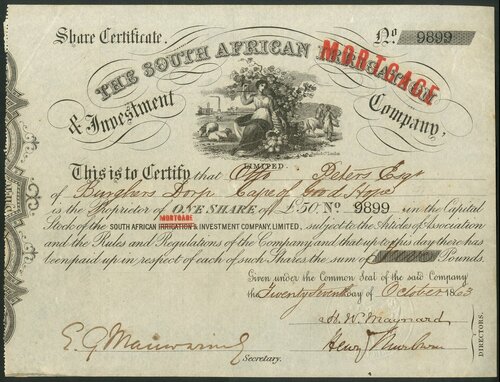 Share Certificate. No. 9899
THE SOUTH AFRICAN IRRIGATION
MORTGAGE
& Investment Company,
LIMITED.
This is to Certify that Otto Peters Esqr
of Burghers Dorp Cape of Good Hope
is the Proprietor of ONE SHARE of £50. No. 9899 in the Capital
MORTGAGE
Stock of the SOUTH AFRICAN IRRIGATION & INVESTMENT COMPANY, LIMITED, subject to the Articles of Association
and the Rules and Regulations of the Company and that up to this day there has
been paid up in respect of each of such Shares the sum of Pounds.
Given under the Common Seal of the said Company
the Twenty Seventh day of October 1863
H. W. Maynard
Henry
E. G.
Secretary.
DIRECTORS.